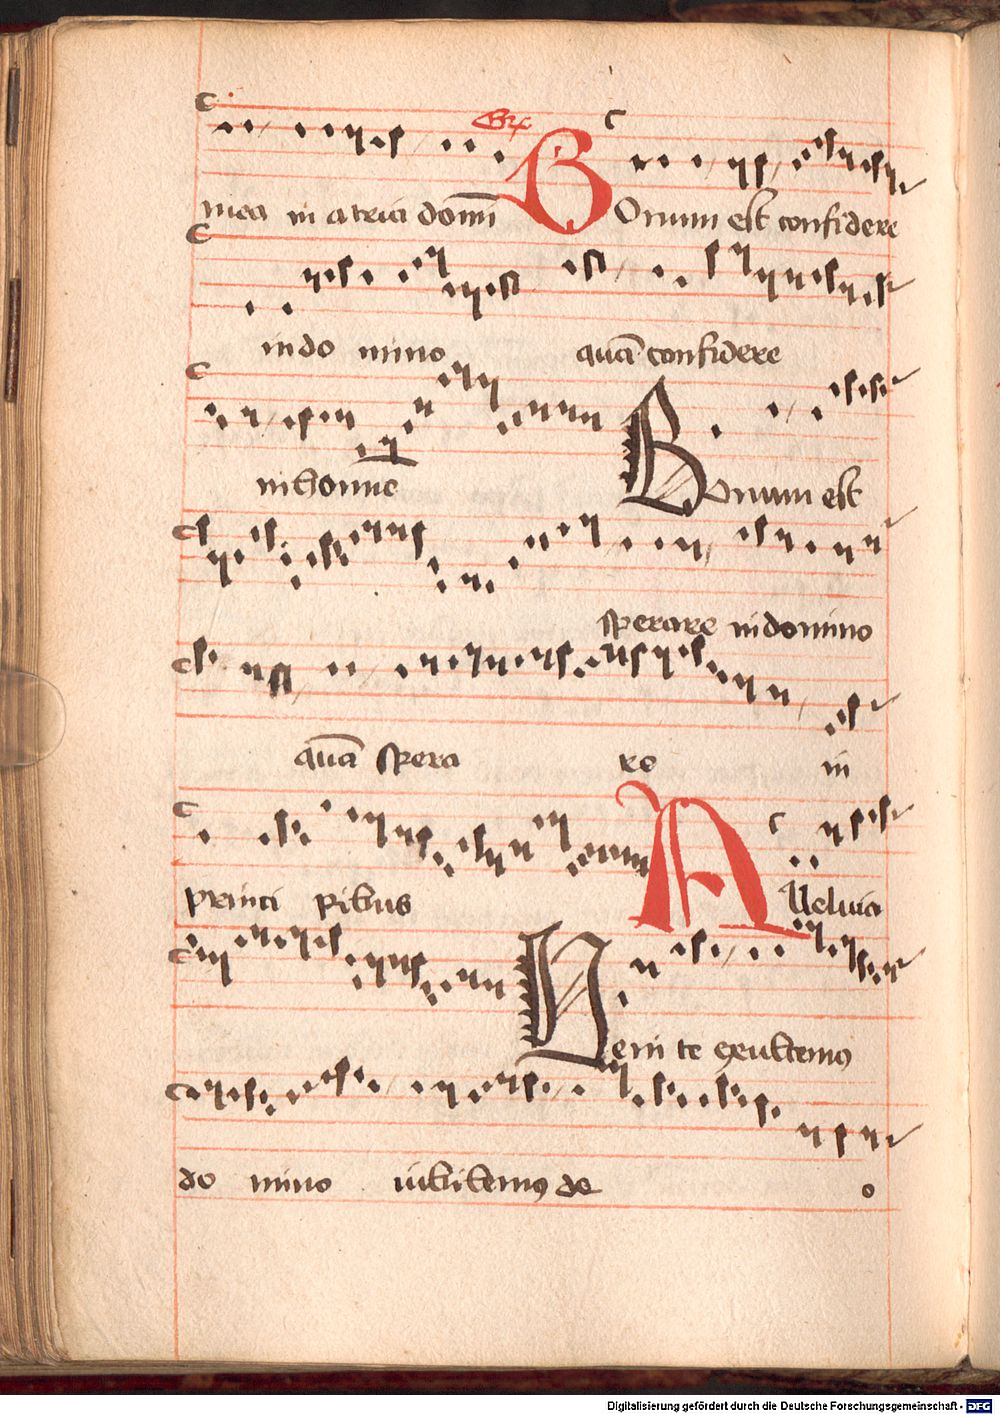 mea in atria domī Gr̄ Bonum est confidere
in do mino quā confidere
in homīe Bonum est
sperare in domino
quā spera re in
princi pibus Alleluia
Uenite exultemꝰ
do mino iubilemꝰ de o
Digitalisierung gefördert durch die Deutsche Forschungsgemeinschaft - DFG